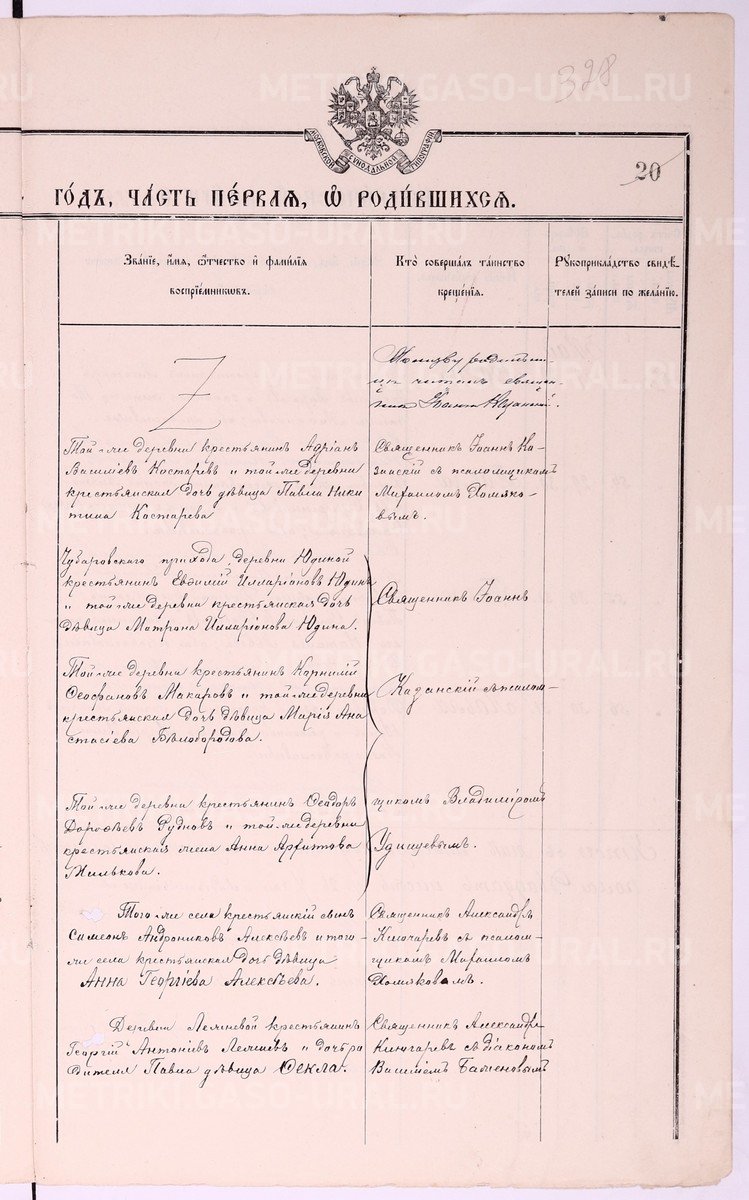 328
МОСКОВСКОЙ СѴНОДАЛЬНОЙ ТИПОГРАФІИ
20
ГОДЪ, ЧАСТЬ ПЕРВАЯ, Ѡ РОДИВШИХСЯ.
Званіе, имя, отчество и фамилія
воспріемниковъ.
Кто совершалъ таинство
крещенія.
Рукоприкладство свидѣ-
телей записи по желанію.
Той-же деревни крестьянинъ Адріанъ
Василіевъ Костаревъ и той-же деревни
крестьянская дочь дѣвица Павла Ники
тина Костарева
Священникъ Іоаннъ Ка-
занскій съ псаломщикомъ
Михаиломъ Хомяко-
вымъ.
Чубаровскаго прихода, деревни Юдиной
крестьянинъ Евѳимій Илларіоновъ Юдинъ
и той-же деревни крестьянская дочь
дѣвица Матрона Илларіонова Юдина.
Той-же деревни крестьянинъ Корнилій
Ѳеофановъ Макаровъ и той-же деревни
крестьянская дочь дѣвица Марія Ана
стасіева Бѣлобородова.
Той-же деревни крестьянинъ Ѳеодоръ
Дороѳеевъ Рудновъ и той-же деревни
крестьянская жена Анна
Жилькова.
Священникъ Іоаннъ
Казанскій съ псалом-
щикомъ Владиміромъ
Удищевымъ.
Того-же села крестьянскій сынъ
Симеонъ Андрониковъ Алексѣевъ и того-
же села крестьянская дочь дѣвица
Анна Георгіева Алексѣева.
Священникъ Александръ
Ключаревъ съ псалом-
щикомъ Михаиломъ
Хомяковамъ.
Деревни крестьянинъ
Георгій Антоніевъ и дочь ро
дителя Павла дѣвица Ѳекла.
Священникъ Александръ
Ключаревъ съ діакономъ
Василіемъ Баженовымъ
METRIKI.GASO-URAL.RU